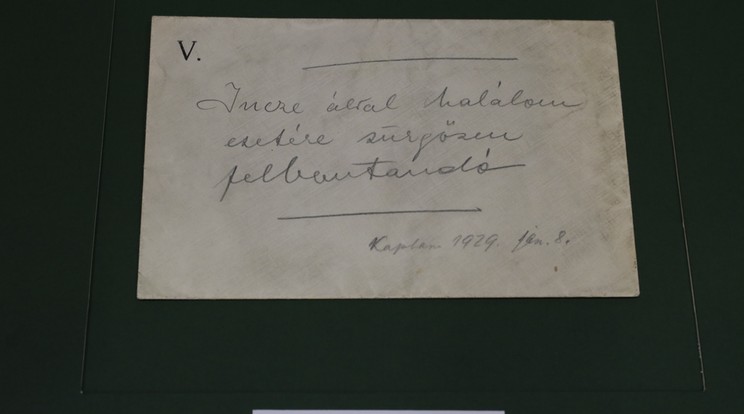 V.
Incze által halálom
esetére sürgősen
felbontandó
Kaptam 1929. jan. 8.